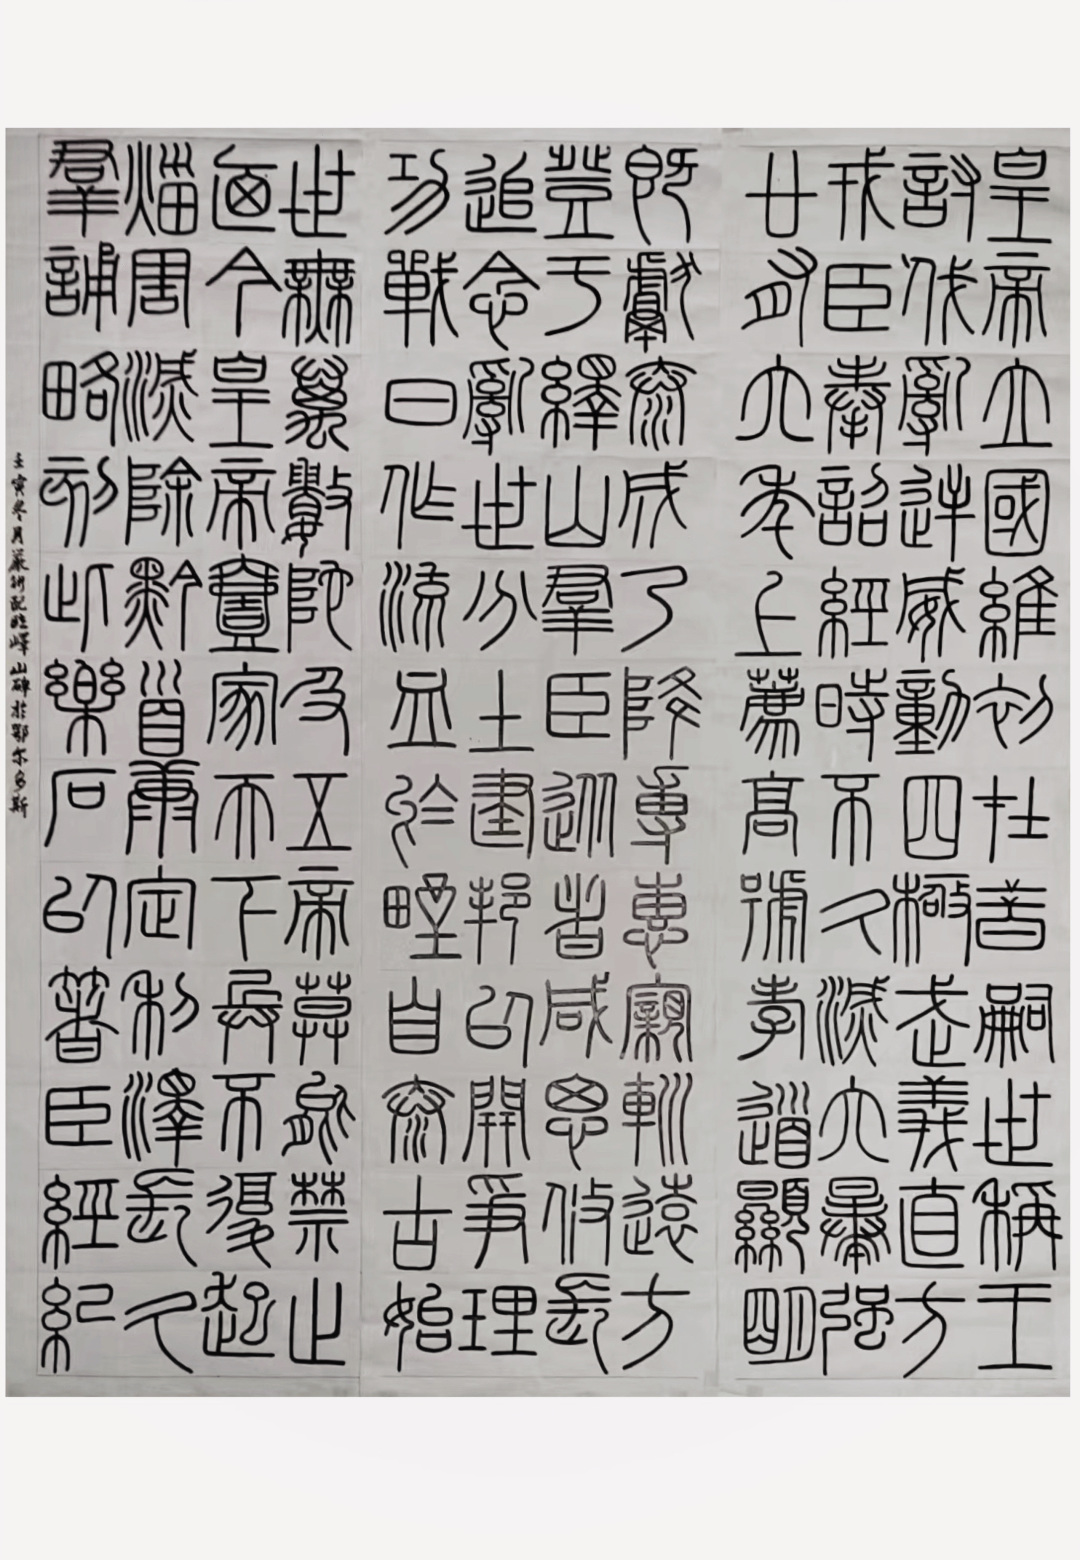 皇帝立國維初在昔嗣世稱王
討伐亂逆威動四極武義直方
戎臣奉詔經時不久滅六暴強
廿有六年上薦高號孝道顯明
既獻泰成乃降專惠親巡遠方
登于繹山羣臣從者咸思攸長
追念亂世分土建邦以開爭理
功戰日作流血於野自泰古始
世無萬數陀及五帝莫能禁止
廼今皇帝壹家天下兵不復起
災害滅除黔首康定利澤長久
羣誦略刻此樂石以著臣經紀
壬寅冬月臨嶧山碑於鄂尔多斯